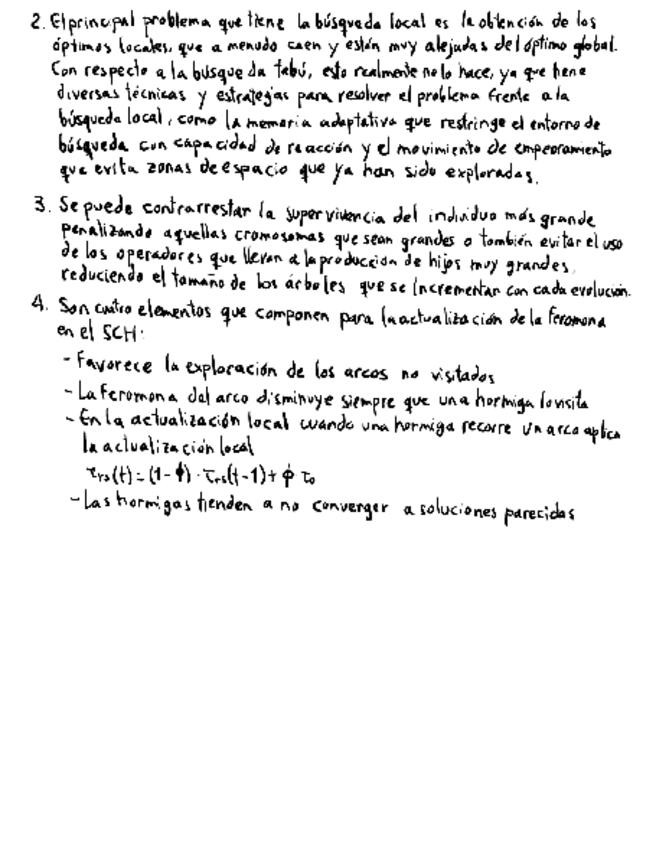 2. El principal problema que tiene la búsqueda local es la obtención de los
óptimos locales, que a menudo caen y están muy alejadas del óptimo global.
Con respecto a la búsqueda tabú, esto realmente no lo hace, ya que tiene
diversas técnicas y estrategias para resolver el problema frente a la
búsqueda local, como la memoria adaptativa que restringe el entorno de
búsqueda con capacidad de reacción y el movimiento de empeoramiento
que evita zonas de espacio que ya han sido exploradas.
3. Se puede contrarrestar la supervivencia del individuo más grande
penalizando aquellas cromosomas que sean grandes o también evitar el uso
de los operadores que llevan a la producción de hijos muy grandes,
reduciendo el tamaño de los árboles que se incrementan con cada evolución.
4. Son cuatro elementos que componen para la actualización de la feromona
en el SCH:
- Favorece la exploración de los arcos no visitados
- La feromona del arco disminuye siempre que una hormiga lo visita
- En la actualización local cuando una hormiga recorre un arco aplica
la actualización local
τrs(t) = (1-ϕ) · τrs(t-1) + ϕ τ0
- Las hormigas tienden a no converger a soluciones parecidas